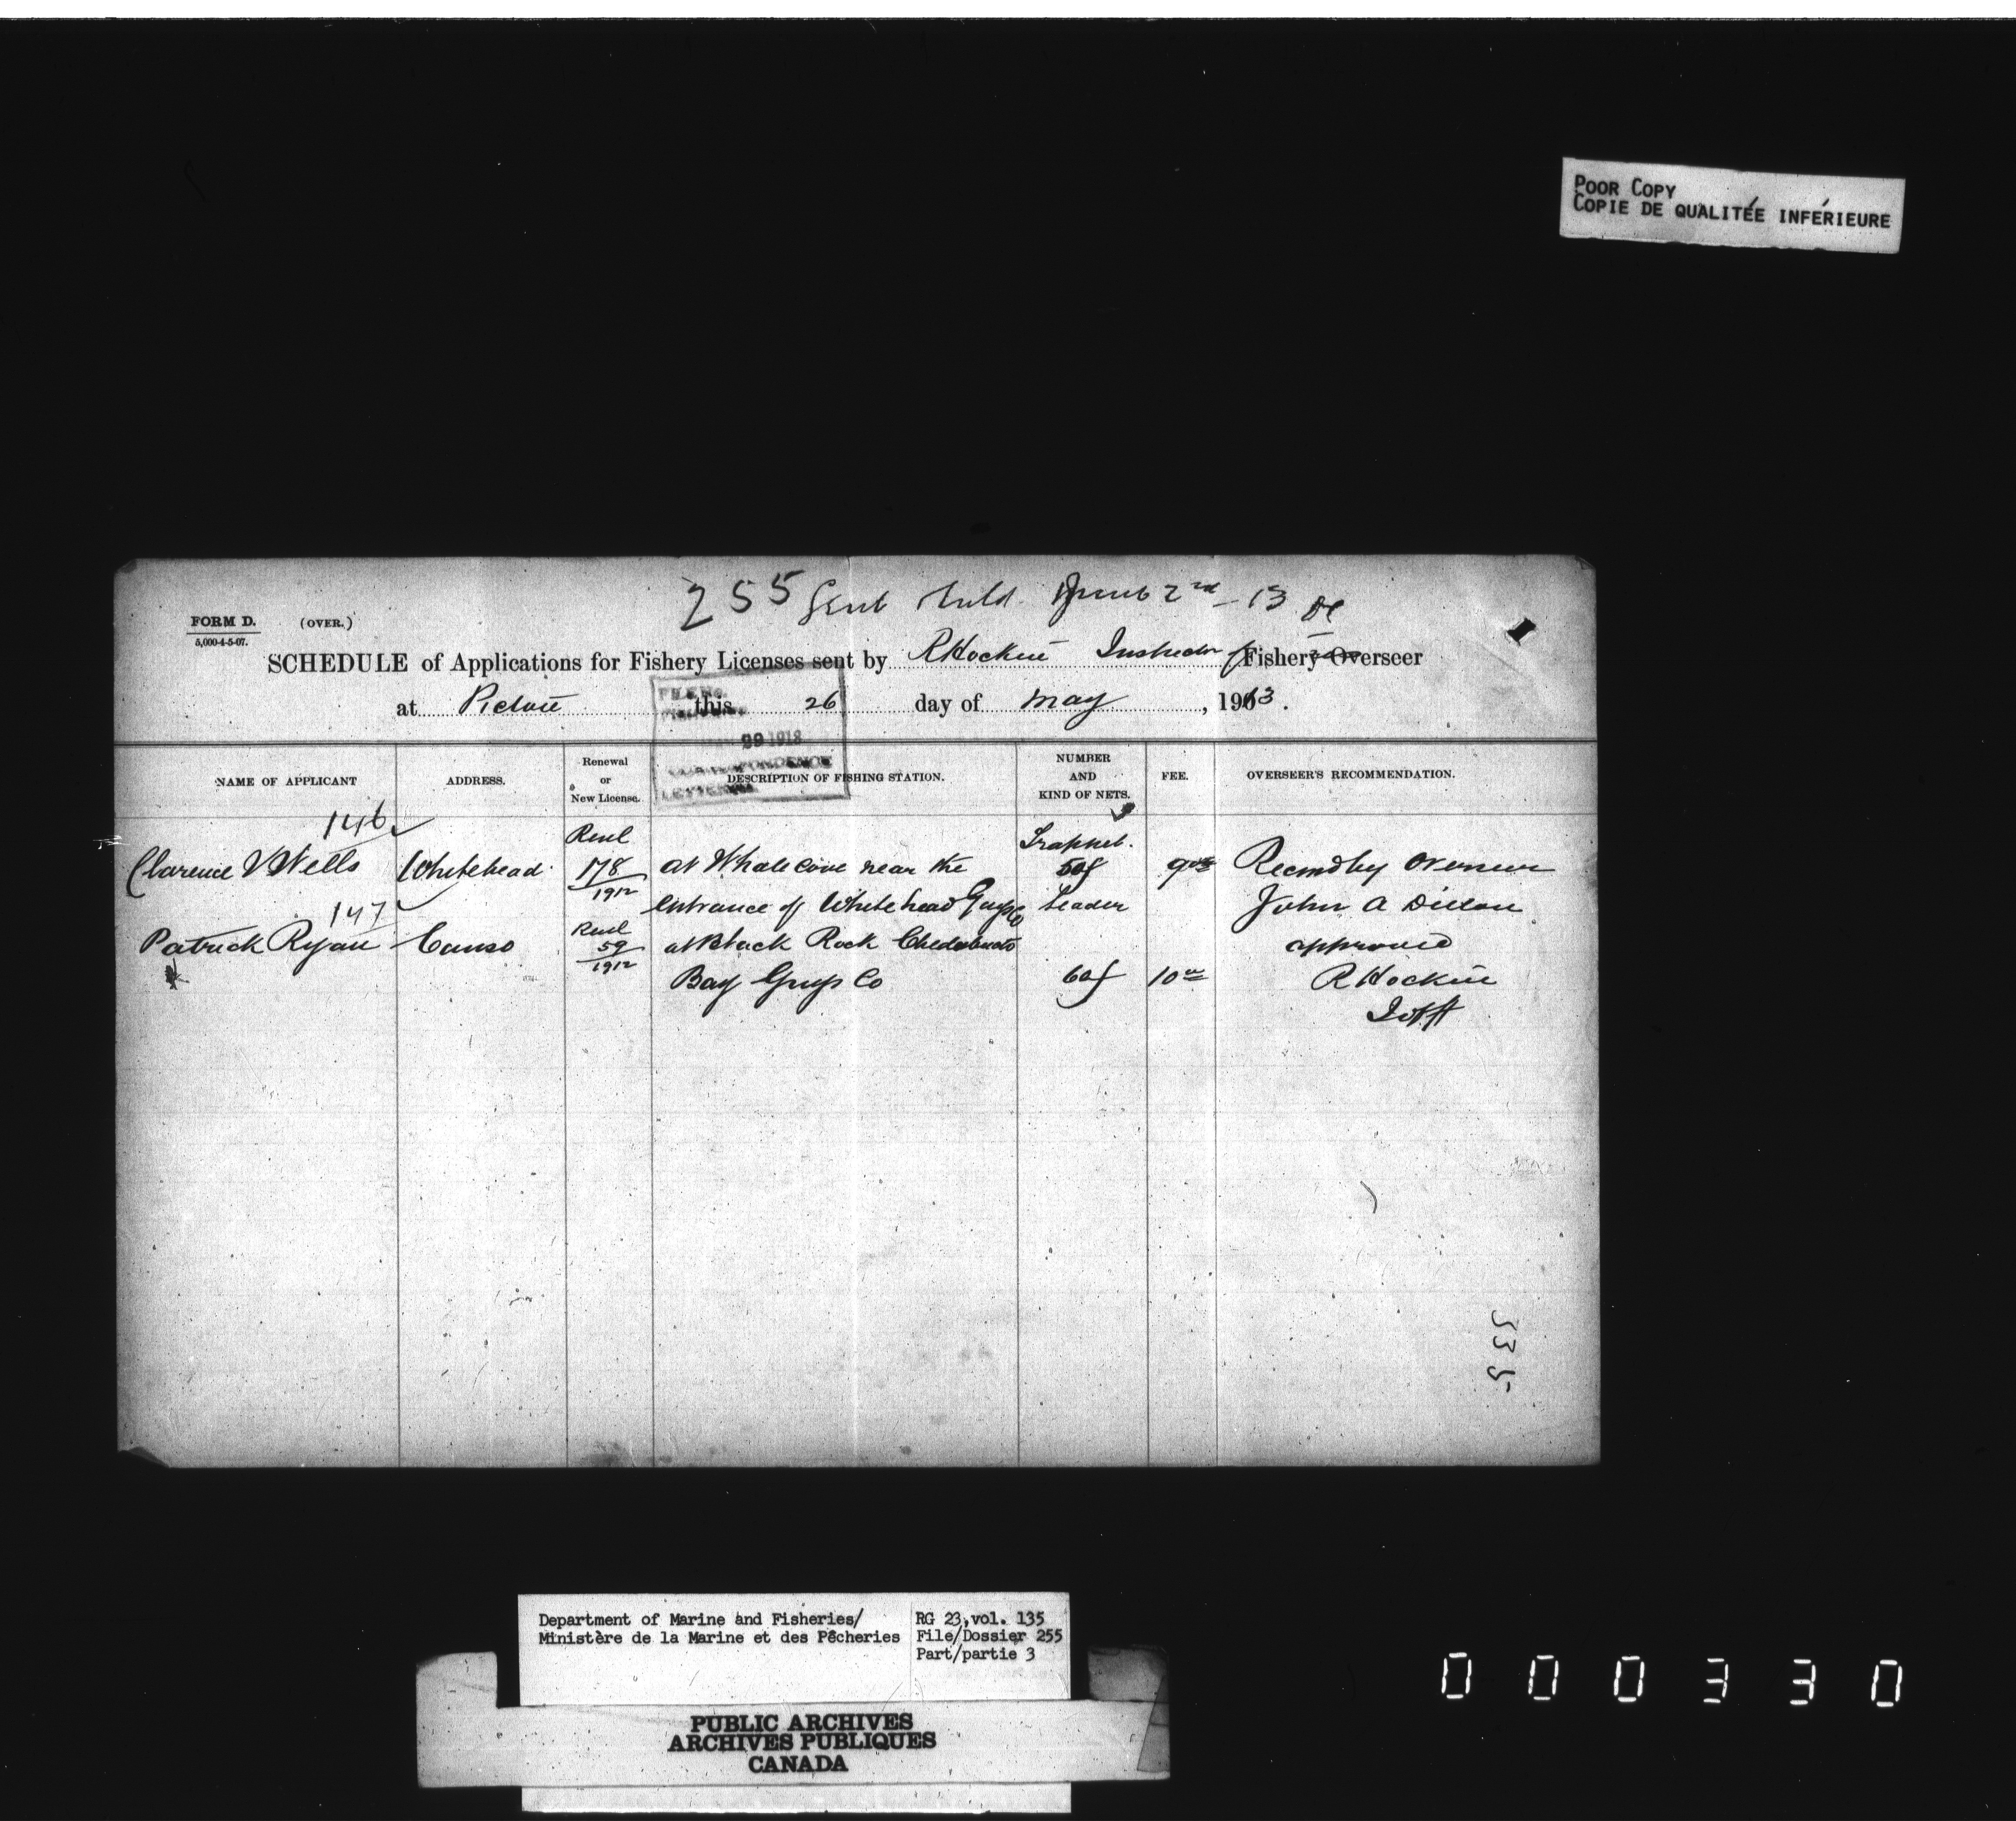 POOR COPY
COPIE DE QUALITÉE INFÉRIEURE
255 June 2nd - 13
FORM D. (OVER.)
5,000-4-5-07.
SCHEDULE of Applications for Fishery Licenses sent by R Hockin Inspector of Fishery Overseer
at Pictou this 26 day of May, 1913.
FILE No.
29 1913
CORRESPONDENCE
NAME OF APPLICANT ADDRESS. Renewal or New License. DESCRIPTION OF FISHING STATION. NUMBER AND KIND OF NETS. FEE. OVERSEER'S RECOMMENDATION.
146 Renl Trapnet.
Clarence V Wells Whitehead 178 at Whale Cove near the 50f 9 00 Recmd by Overseer
1912 entrance of Whitehead Guys Co Leader John A Dixon
147 Renl
Patrick Ryan Canso 59 at Black Rock Chedabucto approved
1912 Bay Guys Co 60f 10 00 R Hockin
I of F
335
Department of Marine and Fisheries/ RG 23, vol. 135
Ministère de la Marine et des Pêcheries File/Dossier 255
Part/partie 3
PUBLIC ARCHIVES
ARCHIVES PUBLIQUES
CANADA
000330